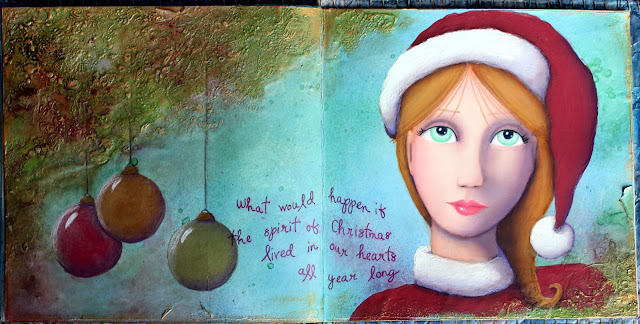 what would happen if
the spirit of Christmas
lived in our hearts
all year long